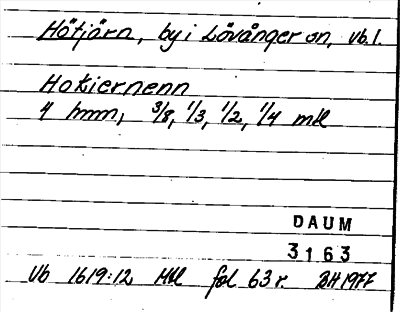 Hötjärn, by i Lövånger sn, Vb.l.
Hotiernenn
4 hmn, 3/8, 1/3, 1/2, 1/4 mtl
DAUM
3163
Vb 1619:12 Mtl fol 63 r. BH 1977